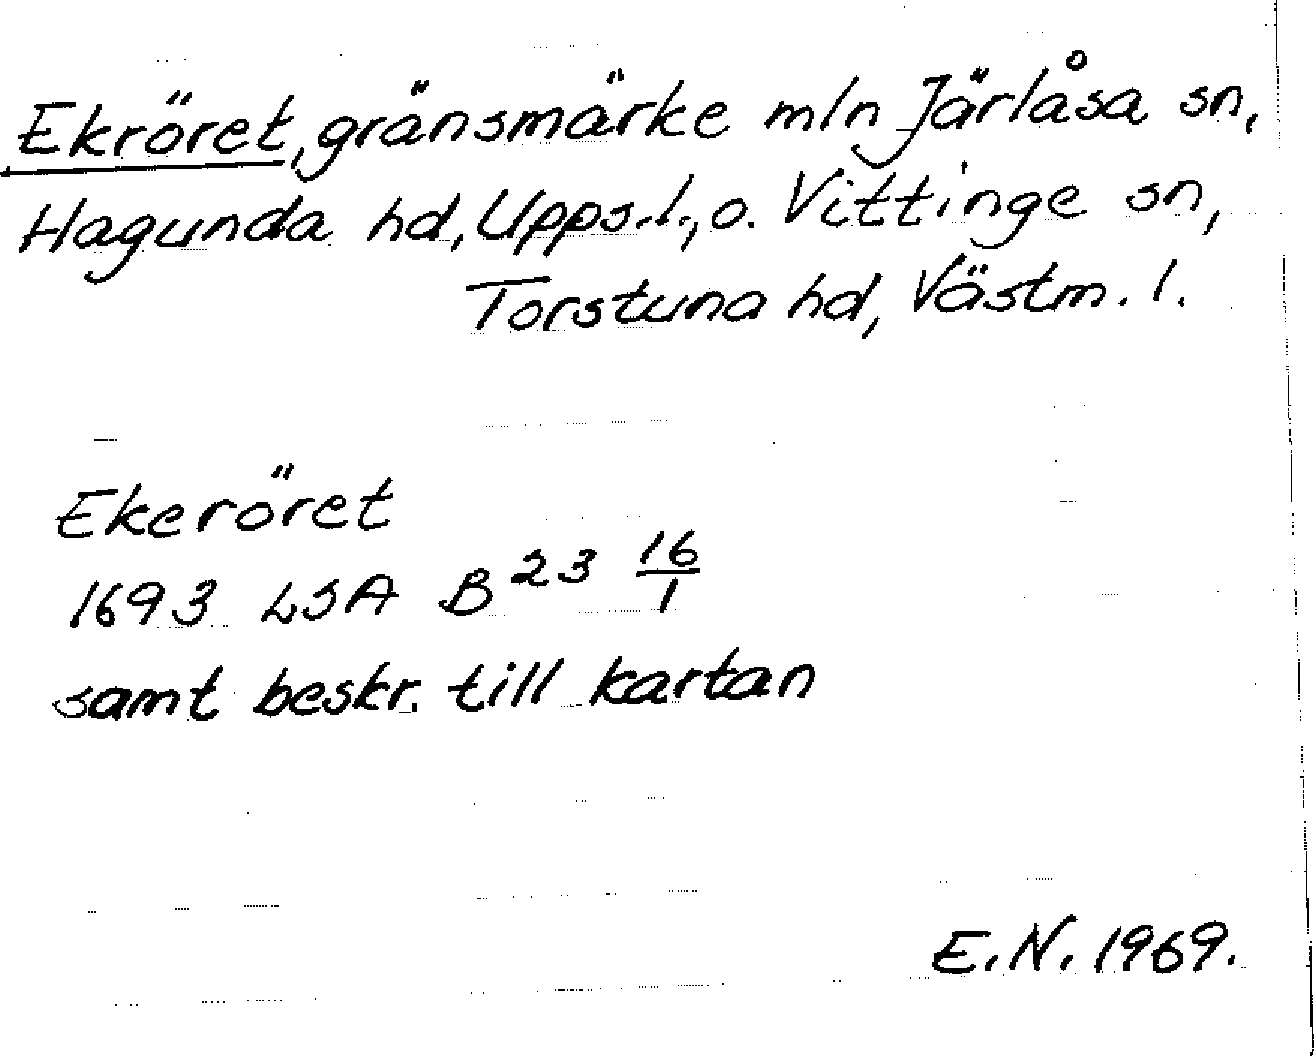 Ekröret, gränsmärke mln Järlåsa sn,
Hagunda hd, Upps.l., o. Vittinge sn,
Torstuna hd, Västm. l.
Ekeröret
1693 LSA B 23 16/1
samt beskr. till kartan
E.N. 1969.